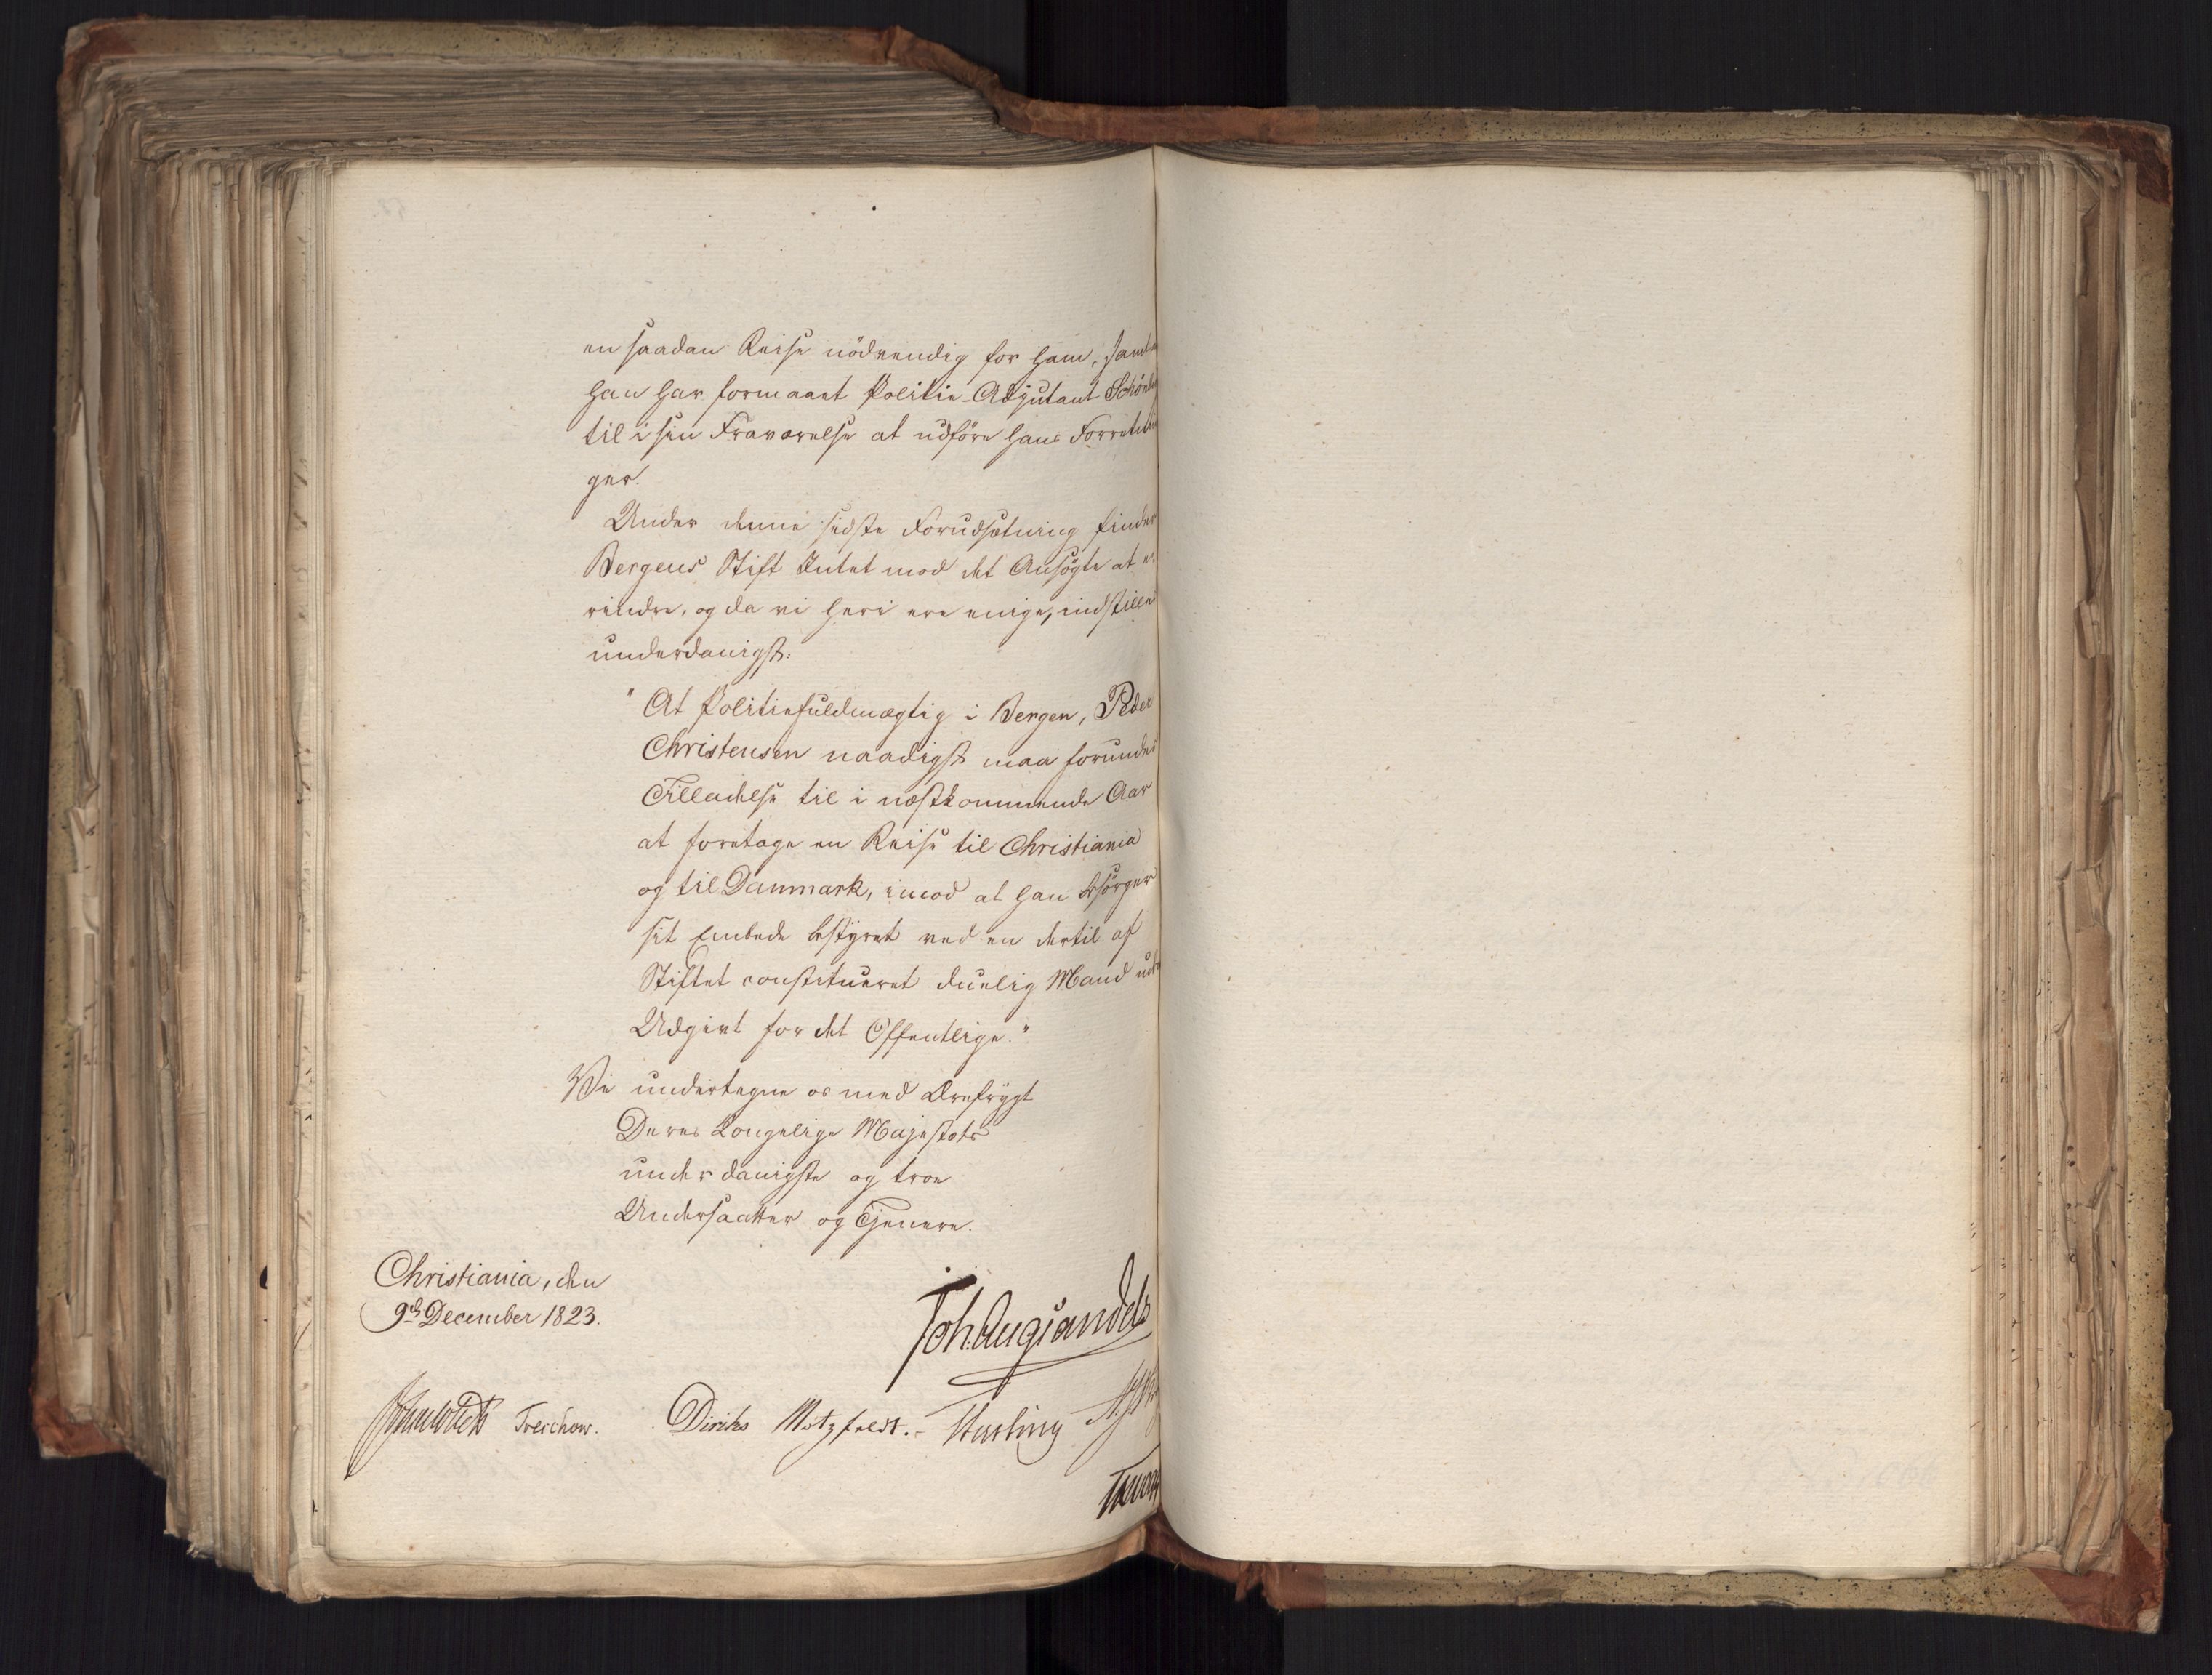 en saadan Reise nödvendig for ham, samt
han har formaaet Politie-Adjutant
til i sin Fraværelse at udföre hans Forretnin
ger.
Under denne sidste Forudsætning finder
Bergens Stift Intet mod det Ansögte at e-
rindre, og da vi heri ere enige, indstilles
underdanigst:
"At Politiefuldmægtig i Bergen, Peder
Christensen naadigst maa forundes
Tilladelse til i næstkommende Aar
at foretage en Reise til Christiania
og til Danmark, imod at han besörger
sit Embede bestyret ved en dertil af
Stiftet constitueret duelig Mand uden
Udgivt for det Offentlige."
Vi undertegne os med Ærefrygt
Deres Kongelige Majestæts
underdanigste og troe
Undersaatter og Tjenere.
Christiania, den
9de December 1823.
Joh. Aug Sandels
Treschow. Diriks Motzfeldt.